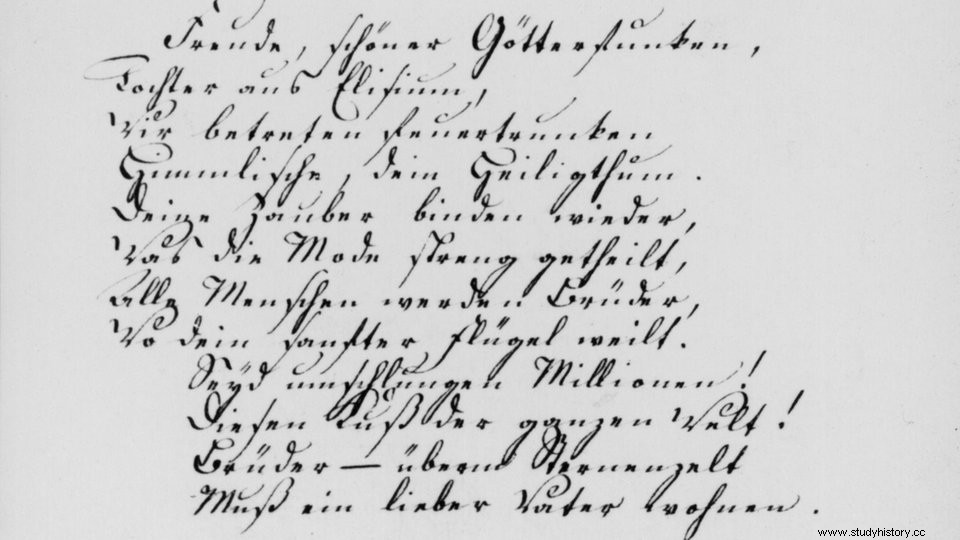 Freude, schöner Götterfunken,
Tochter aus Elisium,
Wir betreten feuertrunken
Himmlische, dein Heiligthum.
Deine Zauber binden wieder,
Was die Mode streng getheilt,
Alle Menschen werden Brüder,
Wo dein sanfter Flügel weilt.
Seyd umschlungen Millionen!
Diesen Kuß der ganzen Welt!
Brüder — überm Sternenzelt
Muß ein lieber Vater wohnen.
www.studyhistory.cc